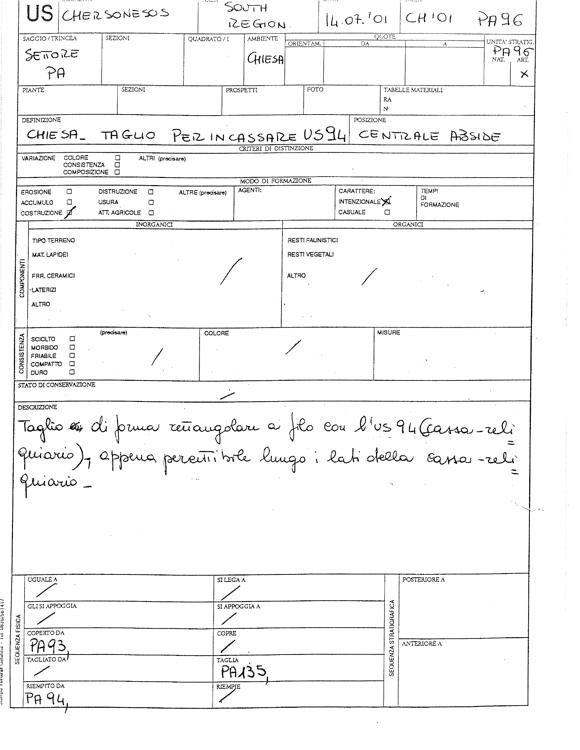 US CHERSONESOS
SOUTH REGION
14.07.'01
CH'01
PA96
SAGGIO/TRINCEA
SETTORE PA
SEZIONI
QUADRATO/I
AMBIENTE
CHIESA
QUOTE
ORIENTAM.
DA
A
UNITA' STRATIG.
PA96
NAT. ART.
X
PIANTE
SEZIONI
PROSPETTI
FOTO
TABELLE MATERIALI
RA
N
DEFINIZIONE
CHIESA_ TAGLIO PER INCASSARE US94
POSIZIONE
CENTRALE ABSIDE
CRITERI DI DISTINZIONE
VARIAZIONE
COLORE
CONSISTENZA
COMPOSIZIONE
ALTRI (precisare)
MODO DI FORMAZIONE
EROSIONE
ACCUMULO
COSTRUZIONE
DISTRUZIONE
USURA
ATT. AGRICOLE
ALTRE (precisare)
AGENTI:
CARATTERE:
INTENZIONALE
CASUALE
TEMPI
DI
FORMAZIONE
COMPONENTI
INORGANICI
TIPO TERRENO
MAT. LAPIDEI
FRR. CERAMICI
LATERIZI
ALTRO
ORGANICI
RESTI FAUNISTICI
RESTI VEGETALI
ALTRO
CONSISTENZA
SCIOLTO
MORBIDO
FRIABILE
COMPATTO
DURO
(precisare)
COLORE
MISURE
STATO DI CONSERVAZIONE
DESCRIZIONE
Taglio di forma rettangolare a filo con l'US 94 (cassa-reli
quiario), appena percettibile lungo i lati della cassa-reli
quiario_
SEQUENZA FISICA
UGUALE A
SI LEGA A
GLI SI APPOGGIA
SI APPOGGIA A
COPERTO DA
PA93,
COPRE
TAGLIATO DA
TAGLIA
PA135,
RIEMPITO DA
PA94,
RIEMPIE
SEQUENZA STRATIGRAFICA
POSTERIORE A
ANTERIORE A